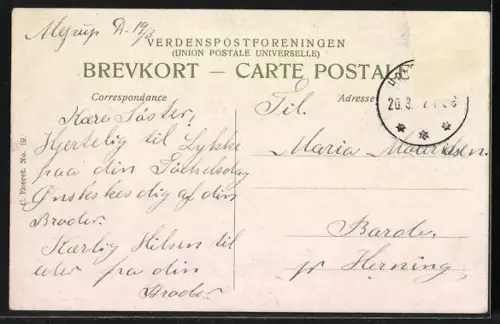 Myrup D. 19/3
VERDENSPOSTFORENINGEN
(UNION POSTALE UNIVERSELLE)
BREVKORT — CARTE POSTALE
Correspondance
Adresse
20.3.
Kære Søster!
Hjertelig til Lykke
paa din Födselsdag
Ønskes dig af din
Broder.
Kærlig Hilsen til
eder fra din
Broder.
Til.
Maria Mouridsen.
Barde.
pr Herning
Eneret. No. 19.